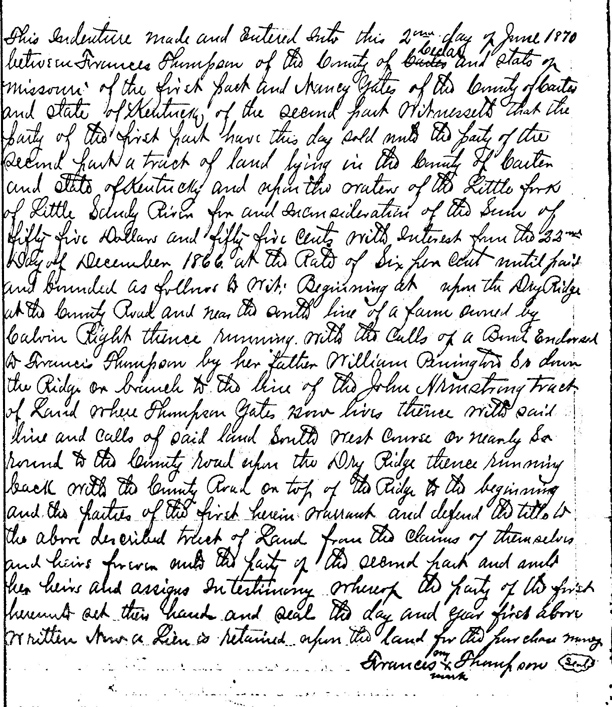 This Indenture made and Entered Into this 2nd day of June 1870
between Frances Thompson of the County of Cedar and state of
missouri of the first part and Nancy Yates of the County of Carter
and state of Kentucky of the second part Witnesseth that the
party of the first part have this day sold unto the party of the
second part a tract of land lying in the County of Carter
and state of Kentucky and upon the waters of the Little fork
of Little Sandy River for and Inconsideration of the Sum of
fifty five Dollars and fifty five cents with Interest from the 22nd
Day of December 1866 at the Rate of Six per Cent until paid
and bounded as follows to Wit: Beginning at upon the Dry Ridge
at the County Road and near the south line of a farm owned by
Calvin Right thence running with the Calls of a Bond Endorsed
to Francis Thompson by her father William So down
the Ridge or branch to the line of the John Armstrong tract
of Land where Thompson Yates now lives thence with said
line and calls of said land South West Course or nearly So
round to the County road upon the Dry Ridge thence running
back with the County Road on top of the Ridge to the beginning
and the parties of the first herein warrant and defend the title to
the above described tract of Land from the claims of themselves
and heirs forever unto the party of the second part and unto
her heirs and assigns In testimony whereof the party of the first
hereunto set their hand and seal the day and year first above
written Now a Lien is retained upon the land for the purchase money
Francis X Thompson Seal
mark